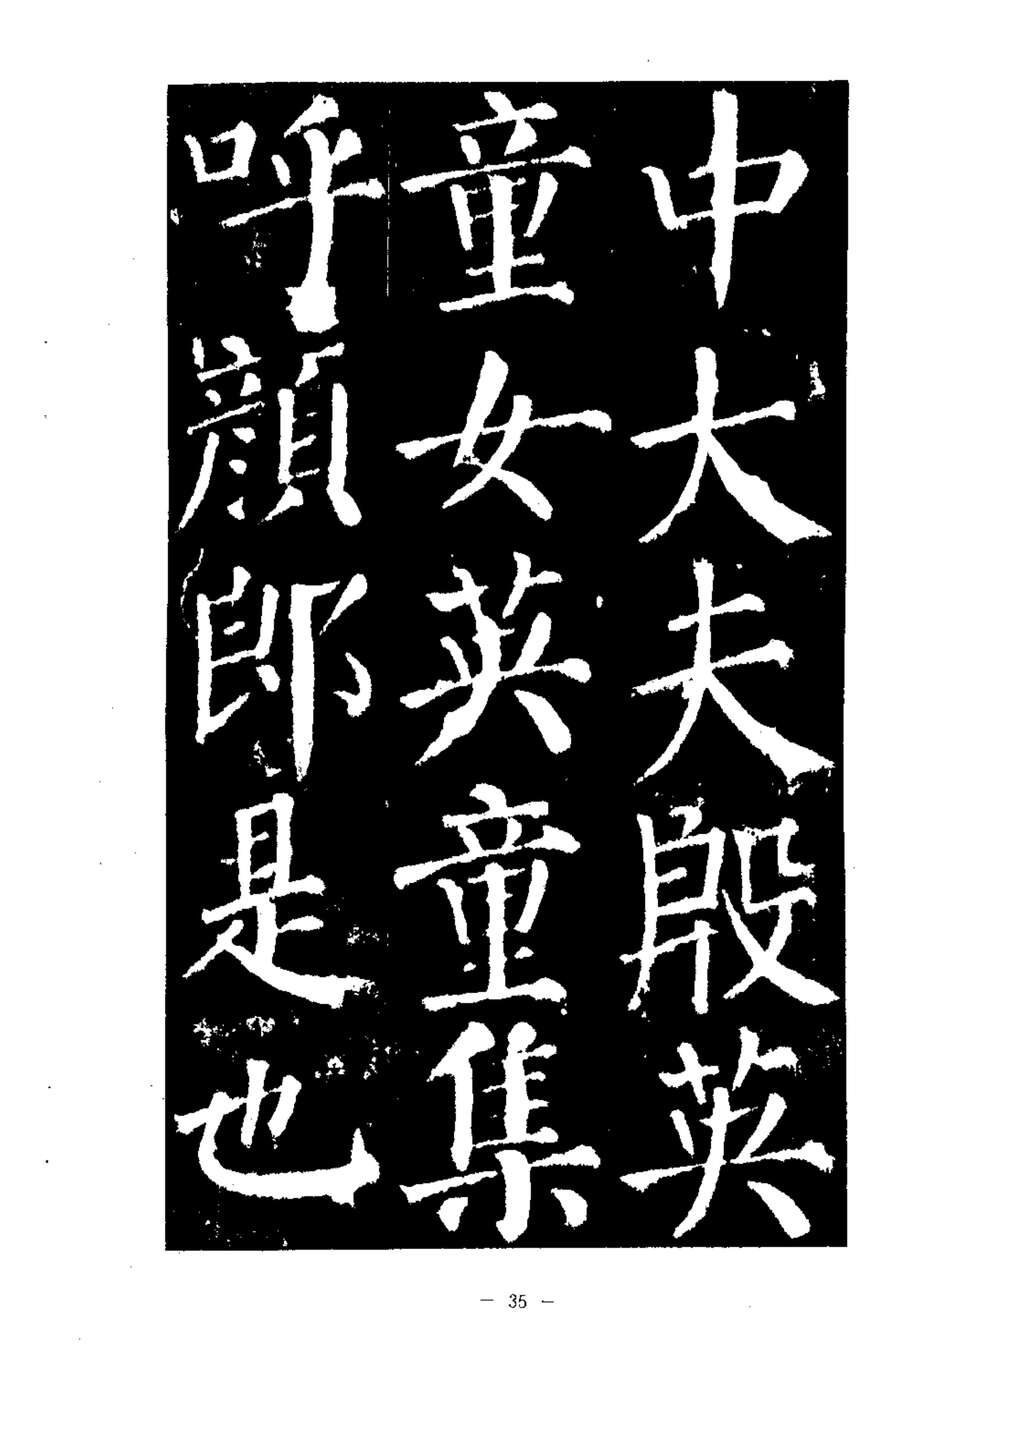 中大夫殷英
童女英童集
呼顔郎是也
- 35 -